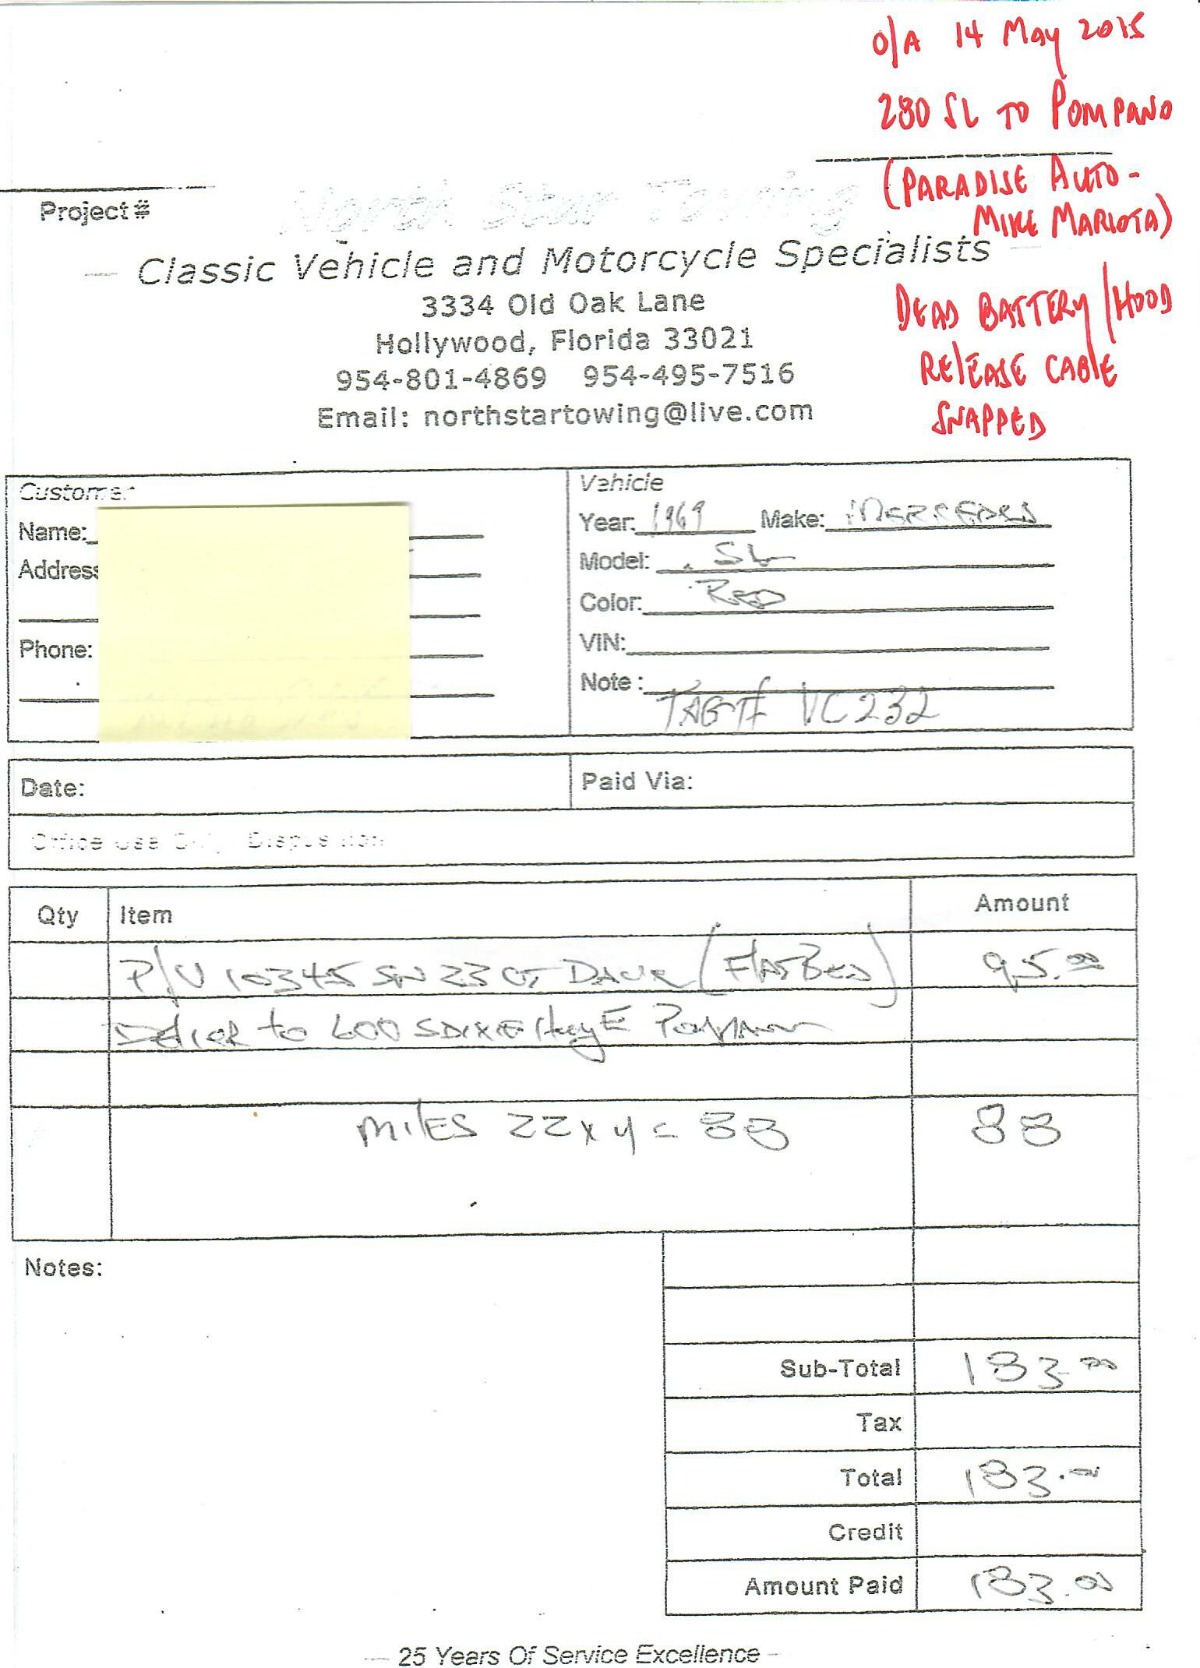 O/A 14 May 2015
280 SL TO POMPANO
(PARADISE AUTO -
MIKE MARIOTA)
DEAD BATTERY / HOOD
RELEASE CABLE
SNAPPED
Project #
North Star Towing
— Classic Vehicle and Motorcycle Specialists —
3334 Old Oak Lane
Hollywood, Florida 33021
954-801-4869 954-495-7516
Email: northstartowing@live.com
Customer
Name:
Address
Phone:
Vehicle
Year: 1969 Make: MERCEDES
Model: SL
Color: RED
VIN:
Note : TAG# VC232
Date: Paid Via:
Office Use Only Disposition
Qty Item Amount
P/U 10345 SW 23 CT DAVIE (FLATBED) 95.00
to 600 S DIXIE Hwy E
MILES 22 x 4 = 88 88
Notes:
Sub-Total 183.00
Tax
Total 183.00
Credit
Amount Paid 183.00
— 25 Years Of Service Excellence –